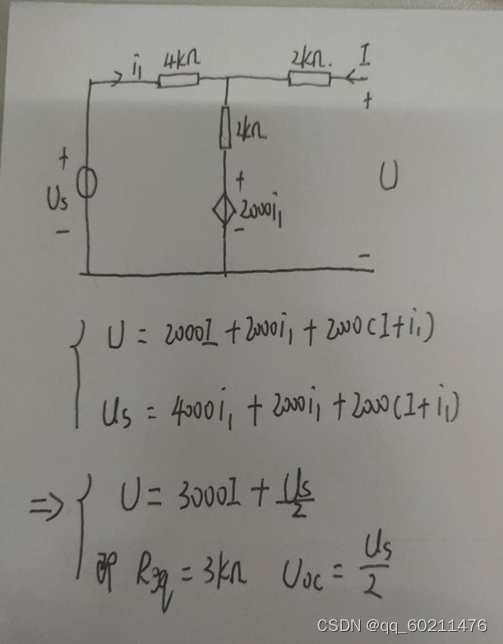 i₁ 4kΩ 2kΩ. I
+
2kΩ
+ + U
Us 2000i₁
- - -
U = 2000I + 2000i₁ + 2000(I+i₁)
Us = 4000i₁ + 2000i₁ + 2000(I+i₁)
⇒ U = 3000I + Us/2
即 Req = 3kΩ Uoc = Us/2
CSDN @qq_60211476